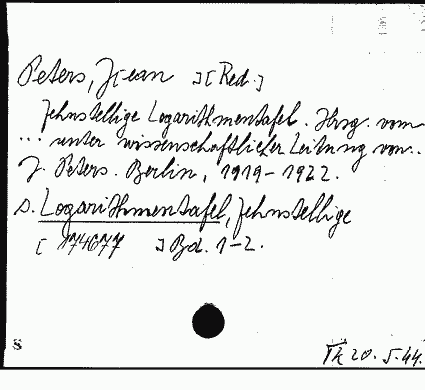 Peters, J[ean ] [Red.]
Zehnstellige Logarithmentafel. Hrsg. vom
... unter wissenschaftlicher Leitung von..
J. Peters. Berlin, 1919-1922.
s. Logarithmentafel, Zehnstellige
[ 174677 ] Bd. 1-2.
8
20. 5. 44.